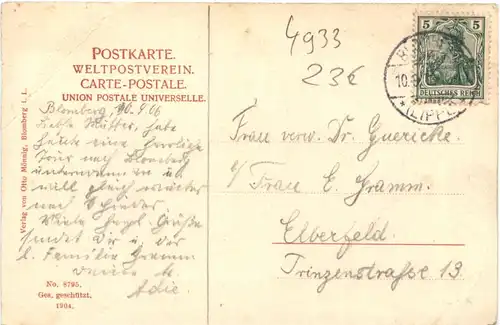 POSTKARTE.
WELTPOSTVEREIN.
CARTE-POSTALE.
UNION POSTALE UNIVERSELLE.
Blomberg 10.9.06
Liebe Mutter, habe
heute eine herrliche
Tour nach Blomberg
unternommen u
will gleich weiter
nach Schieder.
Viele Grüße
sendet Dir u der
l. Familie Gramm
Deine
Adie.
No. 8795.
Ges. geschützt.
1904.
Verlag von Otto Mönnig, Blomberg i. L.
4933
23€
5 5
DEUTSCHES REICH
10.
(LIPPE)
Frau verw. Dr. Guericke
c/ Frau E. Gramm.
Elberfeld.
Prinzenstraße 13